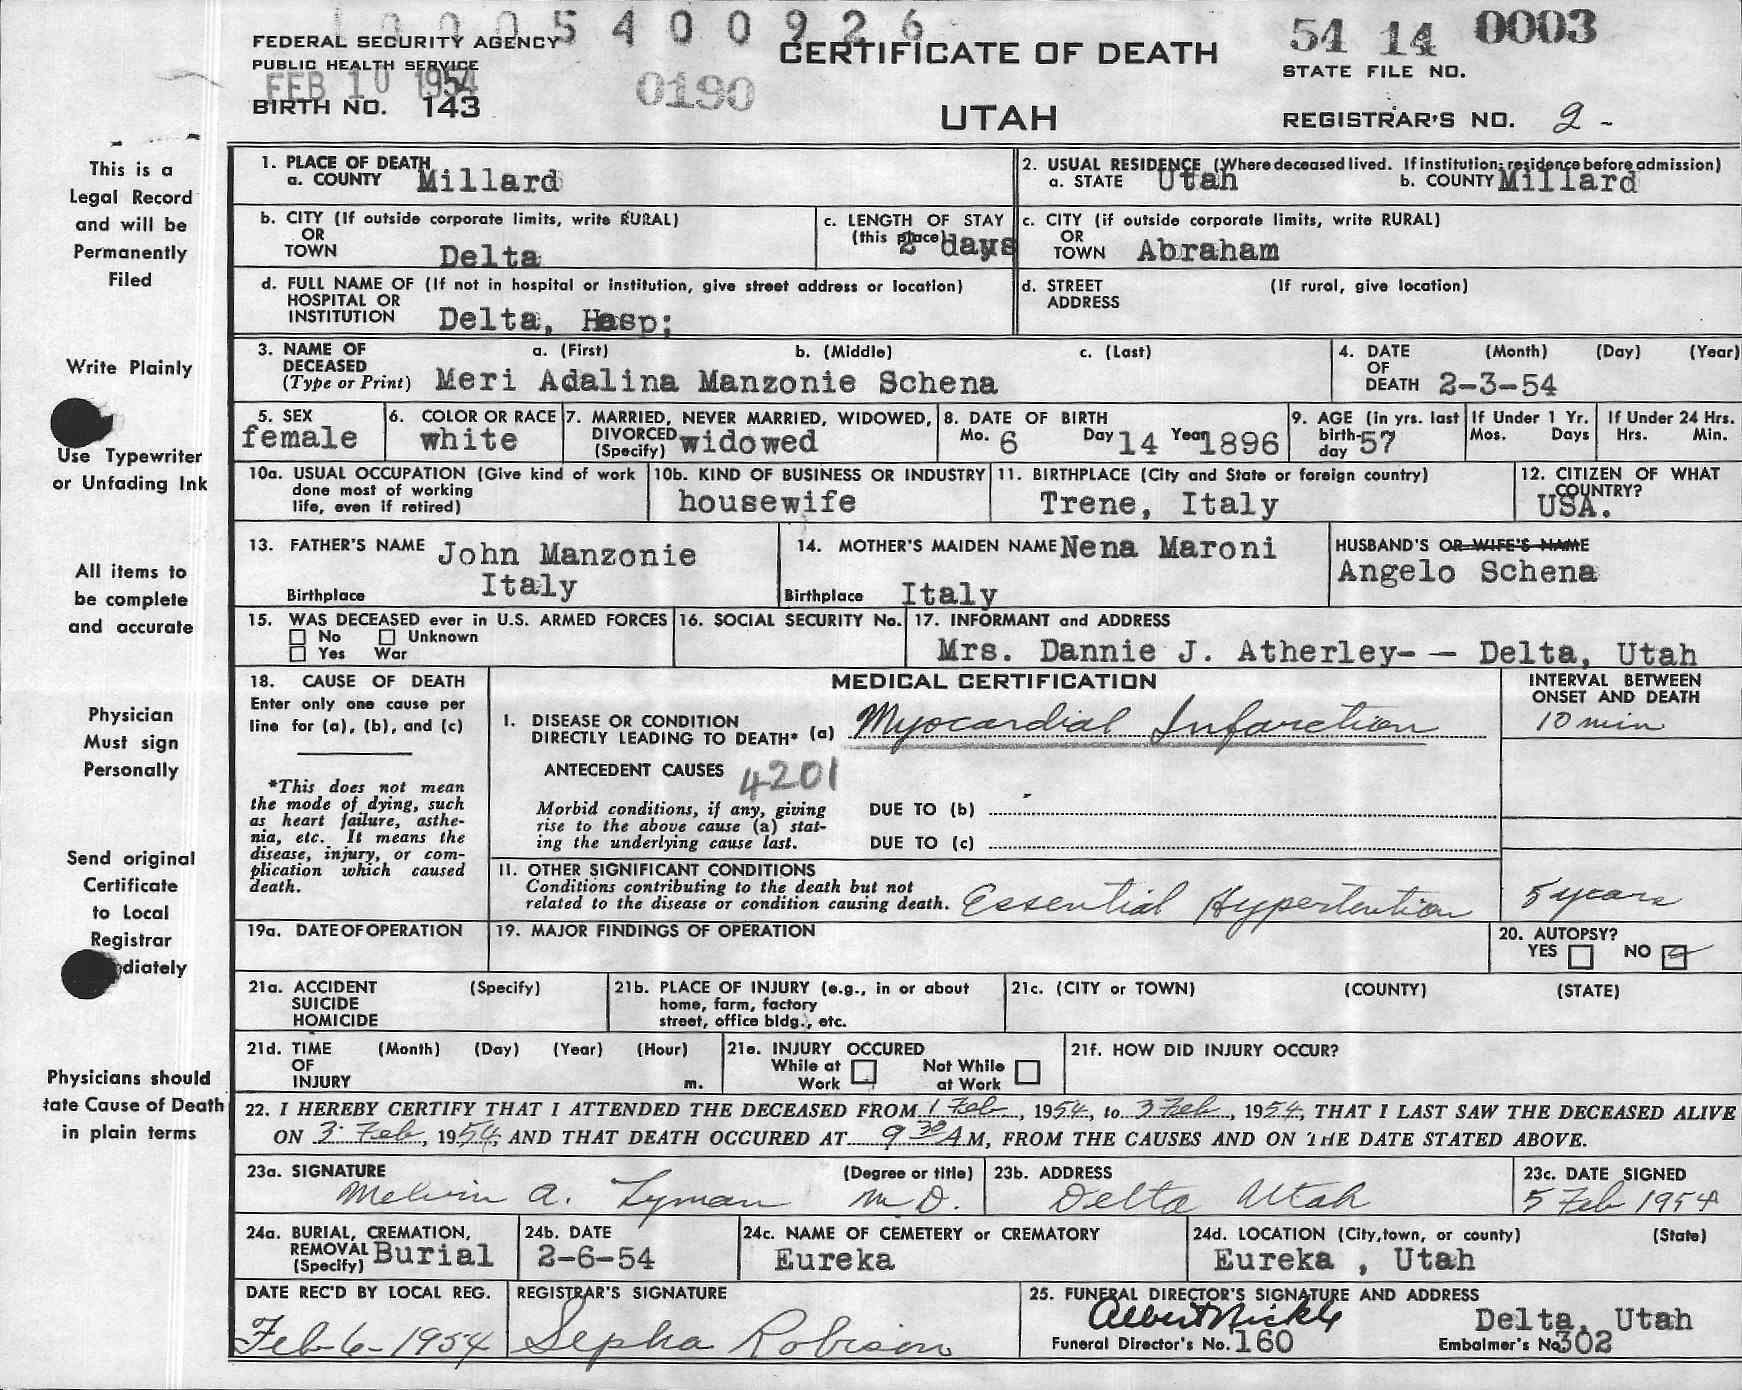 1 0 0 0 5 4 0 0 9 2 6
FEDERAL SECURITY AGENCY
PUBLIC HEALTH SERVICE
FEB 10 1954
BIRTH NO. 143
0190
CERTIFICATE OF DEATH
UTAH
54 14 0003
STATE FILE NO.
REGISTRAR'S NO. 2 -
This is a
Legal Record
and will be
Permanently
Filed
Write Plainly
Use Typewriter
or Unfading Ink
All items to
be complete
and accurate
Physician
Must sign
Personally
Send original
Certificate
to Local
Registrar
diately
Physicians should
tate Cause of Death
in plain terms
1. PLACE OF DEATH
a. COUNTY Millard
2. USUAL RESIDENCE (Where deceased lived. If institution; residence before admission)
a. STATE Utah b. COUNTY Millard
b. CITY (If outside corporate limits, write RURAL)
OR
TOWN Delta
c. LENGTH OF STAY
(this place) 2 days
c. CITY (if outside corporate limits, write RURAL)
OR
TOWN Abraham
d. FULL NAME OF (If not in hospital or institution, give street address or location)
HOSPITAL OR
INSTITUTION Delta, Hasp;
d. STREET (If rural, give location)
ADDRESS
3. NAME OF a. (First) b. (Middle) c. (Last)
DECEASED
(Type or Print) Meri Adalina Manzonie Schena
4. DATE (Month) (Day) (Year)
OF
DEATH 2-3-54
5. SEX
female
6. COLOR OR RACE
white
7. MARRIED, NEVER MARRIED, WIDOWED,
DIVORCED
(Specify) widowed
8. DATE OF BIRTH
Mo. 6 Day 14 Year 1896
9. AGE (in yrs. last
birth-
day 57
If Under 1 Yr.
Mos. Days
If Under 24 Hrs.
Hrs. Min.
10a. USUAL OCCUPATION (Give kind of work
done most of working
life, even if retired)
10b. KIND OF BUSINESS OR INDUSTRY
housewife
11. BIRTHPLACE (City and State or foreign country)
Trene, Italy
12. CITIZEN OF WHAT
COUNTRY?
USA.
13. FATHER'S NAME John Manzonie
Birthplace Italy
14. MOTHER'S MAIDEN NAME Nena Maroni
Birthplace Italy
HUSBAND'S OR WIFE'S NAME
Angelo Schena
15. WAS DECEASED ever in U.S. ARMED FORCES
No Unknown
Yes War
16. SOCIAL SECURITY No.
17. INFORMANT and ADDRESS
Mrs. Dannie J. Atherley- - Delta, Utah
18. CAUSE OF DEATH
Enter only one cause per
line for (a), (b), and (c)
*This does not mean
the mode of dying, such
as heart failure, asthe-
nia, etc. It means the
disease, injury, or com-
plication which caused
death.
MEDICAL CERTIFICATION
INTERVAL BETWEEN
ONSET AND DEATH
I. DISEASE OR CONDITION
DIRECTLY LEADING TO DEATH* (a) Myocardial Infarction 10 min
ANTECEDENT CAUSES 4201
Morbid conditions, if any, giving
rise to the above cause (a) stat-
ing the underlying cause last.
DUE TO (b)
DUE TO (c)
II. OTHER SIGNIFICANT CONDITIONS
Conditions contributing to the death but not
related to the disease or condition causing death. Essential Hypertention 5 years
19a. DATE OF OPERATION
19. MAJOR FINDINGS OF OPERATION
20. AUTOPSY?
YES NO
21a. ACCIDENT (Specify)
SUICIDE
HOMICIDE
21b. PLACE OF INJURY (e.g., in or about
home, farm, factory
street, office bldg., etc.
21c. (CITY or TOWN) (COUNTY) (STATE)
21d. TIME (Month) (Day) (Year) (Hour)
OF
INJURY m.
21e. INJURY OCCURED
While at Not While
Work at Work
21f. HOW DID INJURY OCCUR?
22. I HEREBY CERTIFY THAT I ATTENDED THE DECEASED FROM 1 Feb, 1954, to 3 Feb, 1954, THAT I LAST SAW THE DECEASED ALIVE
ON 3 Feb, 1954, AND THAT DEATH OCCURED AT 9 30 A M, FROM THE CAUSES AND ON THE DATE STATED ABOVE.
23a. SIGNATURE (Degree or title)
Melvin A. Lyman M D.
23b. ADDRESS
Delta Utah
23c. DATE SIGNED
5 Feb 1954
24a. BURIAL, CREMATION,
REMOVAL
(Specify) Burial
24b. DATE
2-6-54
24c. NAME OF CEMETERY or CREMATORY
Eureka
24d. LOCATION (City, town, or county) (State)
Eureka , Utah
DATE REC'D BY LOCAL REG.
Feb 6 - 1954
REGISTRAR'S SIGNATURE
Sepha Robison
25. FUNERAL DIRECTOR'S SIGNATURE AND ADDRESS
Albert Nickle Delta, Utah
Funeral Director's No. 160 Embalmer's No. 302